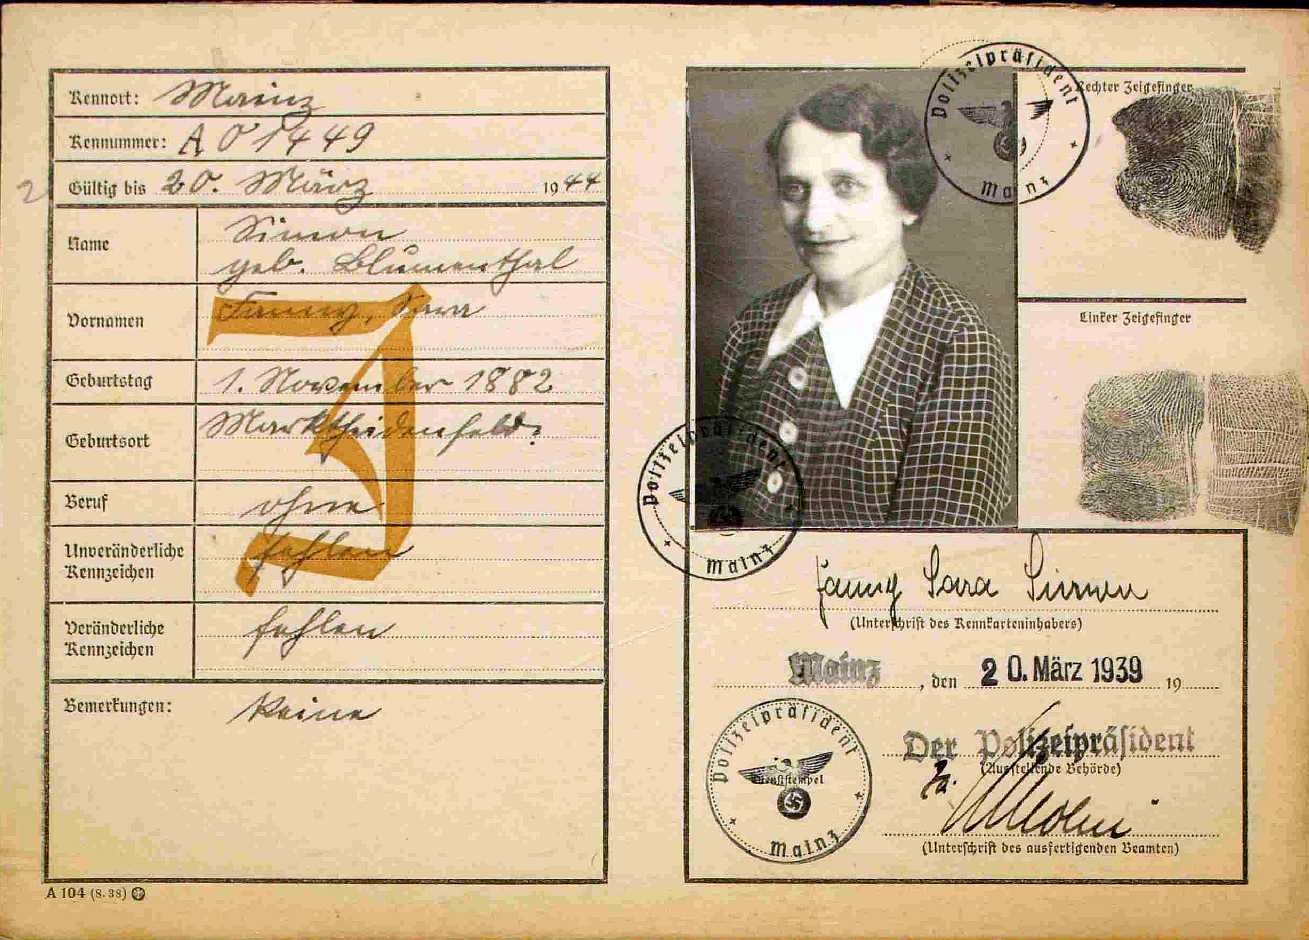 Kennort: Mainz
Kennummer: A 01449
Gültig bis 20. März 1944
2
Name Simon
geb. Blumenthal
Vornamen Fanny, Sara
Geburtstag 1. November 1882
Geburtsort Marktheidenfeld.
Beruf ohne
Unveränderliche Kennzeichen fehlen
Veränderliche Kennzeichen fehlen
Bemerkungen: Keine
J
A 104 (8. 38)
Polizeipräsident
Mainz
Rechter Zeigefinger
Linker Zeigefinger
Polizeipräsident
Mainz
Fanny Sara Simon
(Unterschrift des Kennkarteninhabers)
Mainz, den 20. März 1939 19
Polizeipräsident
Dienststempel
Mainz
Der Polizeipräsident
(Ausstellende Behörde)
(Unterschrift des ausfertigenden Beamten)